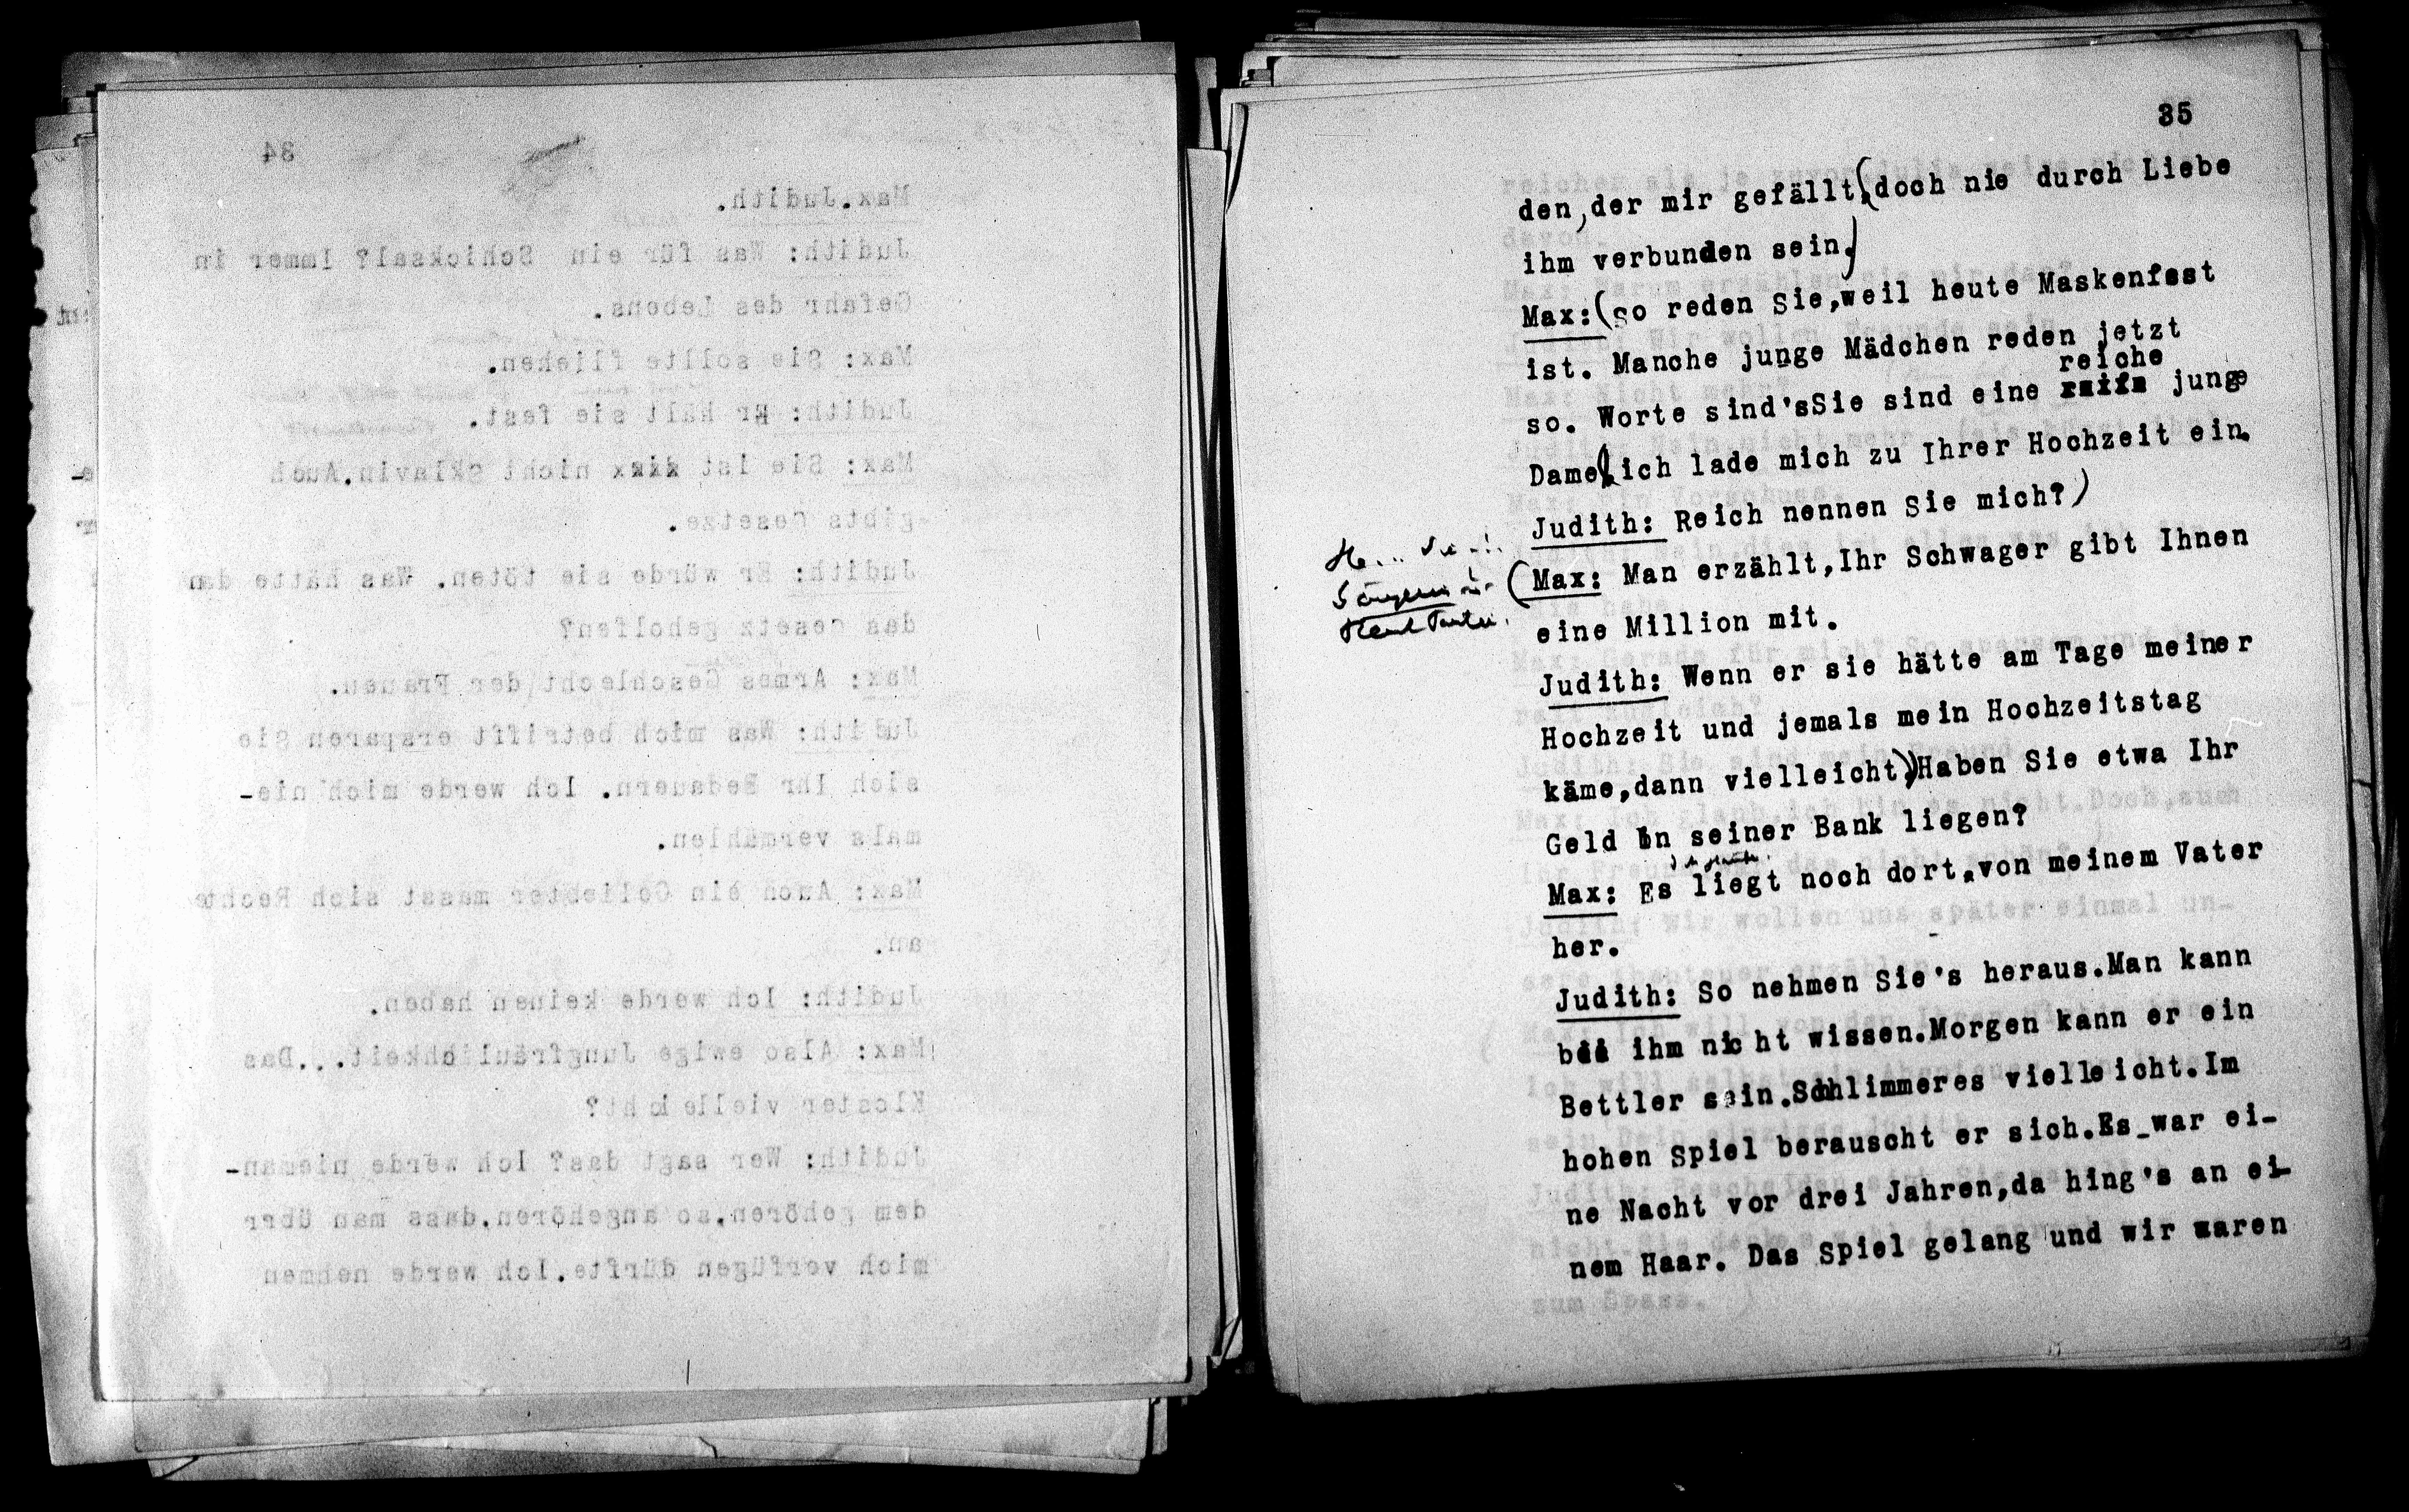 34
Max.Judith.
Judith: Was für ein Schicksal? Immer in
Gefahr des Lebens.
Max: Sie sollte fliehen.
Judith: Er hält sie fest.
Max: Sie ist nicht Sklavin.Auch
gibts Gesetze.
Judith: Er würde sie töten. Was hätte dan
das Gesetz geholfen?
Max: Armes Geschlecht der Frauen.
Judith: Was mich betrifft ersparen Sie
sich Ihr Bedauern. Ich werde mich nie-
mals vermählen.
Max: Auch ein Geliebter masst sich Rechte
an.
Judith: Ich werde keinen haben.
Max: Also ewige Jungfräulichkeit...Das
Kloster vielleicht?
Judith: Wer sagt das? Ich werde nieman-
dem gehören,so angehören,dass man über
mich verfügen dürfte.Ich werde nehmen
35
den,der mir gefällt,(doch nie durch Liebe
ihm verbunden sein.)
Max:(So reden Sie,weil heute Maskenfest
ist. Manche junge Mädchen reden jetzt
reiche
so. Worte sind'sSie sind eine junge
Dame(ich lade mich zu Ihrer Hochzeit ein.
Judith: Reich nennen Sie mich?)
(Max: Man erzählt,Ihr Schwager gibt Ihnen
eine Million mit.
Judith: Wenn er sie hätte am Tage meiner
Hochzeit und jemals mein Hochzeitstag
käme,dann vielleicht.)Haben Sie etwa Ihr
Geld in seiner Bank liegen?
Max: Es liegt noch dort,von meinem Vater
her.
Judith: So nehmen Sie's heraus.Man kann
bei ihm nicht wissen.Morgen kann er ein
Bettler sein.Schlimmeres vielleicht.Im
hohen Spiel berauscht er sich.Es war ei-
ne Nacht vor drei Jahren,da hing's an ei-
nem Haar. Das Spiel gelang und wir waren